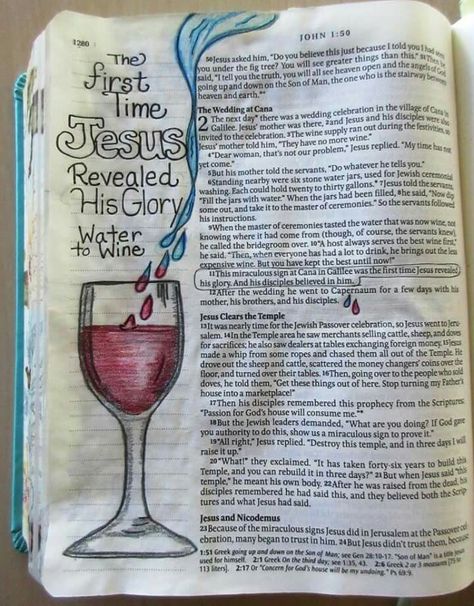 1280
JOHN 1:50
The
first
Time
Jesus
Revealed
His Glory
Water
to Wine
50Jesus asked him, "Do you believe this just because I told you I had seen
you under the fig tree? You will see greater things than this." 51Then he
said, "I tell you the truth, you will all see heaven open and the angels of God
going up and down on the Son of Man, the one who is the stairway between
heaven and earth.*"
The Wedding at Cana
2 The next day* there was a wedding celebration in the village of Cana in
Galilee. Jesus' mother was there, 2and Jesus and his disciples were also
invited to the celebration. 3The wine supply ran out during the festivities, so
Jesus' mother told him, "They have no more wine."
4"Dear woman, that's not our problem," Jesus replied. "My time has not
yet come."
5But his mother told the servants, "Do whatever he tells you."
6Standing nearby were six stone water jars, used for Jewish ceremonial
washing. Each could hold twenty to thirty gallons.* 7Jesus told the servants,
"Fill the jars with water." When the jars had been filled, 8he said, "Now dip
some out, and take it to the master of ceremonies." So the servants followed
his instructions.
9When the master of ceremonies tasted the water that was now wine, not
knowing where it had come from (though, of course, the servants knew),
he called the bridegroom over. 10"A host always serves the best wine first,"
he said. "Then, when everyone has had a lot to drink, he brings out the less
expensive wine. But you have kept the best until now!"
11This miraculous sign at Cana in Galilee was the first time Jesus revealed
his glory. And his disciples believed in him.
12After the wedding he went to Capernaum for a few days with his
mother, his brothers, and his disciples.
Jesus Clears the Temple
13It was nearly time for the Jewish Passover celebration, so Jesus went to Jeru-
salem. 14In the Temple area he saw merchants selling cattle, sheep, and doves
for sacrifices; he also saw dealers at tables exchanging foreign money. 15Jesus
made a whip from some ropes and chased them all out of the Temple. He
drove out the sheep and cattle, scattered the money changers' coins over the
floor, and turned over their tables. 16Then, going over to the people who sold
doves, he told them, "Get these things out of here. Stop turning my Father's
house into a marketplace!"
17Then his disciples remembered this prophecy from the Scriptures:
"Passion for God's house will consume me."*
18But the Jewish leaders demanded, "What are you doing? If God gave
you authority to do this, show us a miraculous sign to prove it."
19"All right," Jesus replied. "Destroy this temple, and in three days I will
raise it up."
20"What!" they exclaimed. "It has taken forty-six years to build this
Temple, and you can rebuild it in three days?" 21But when Jesus said "this
temple," he meant his own body. 22After he was raised from the dead, his
disciples remembered he had said this, and they believed both the Scrip-
tures and what Jesus had said.
Jesus and Nicodemus
23Because of the miraculous signs Jesus did in Jerusalem at the Passover cel-
ebration, many began to trust in him. 24But Jesus didn't trust them, because
1:51 Greek going up and down on the Son of Man; see Gen 28:10-17. "Son of Man" is a title Jesus
used for himself. 2:1 Greek On the third day; see 1:35, 43. 2:6 Greek 2 or 3 measures [75 to
113 liters]. 2:17 Or "Concern for God's house will be my undoing." Ps 69:9.